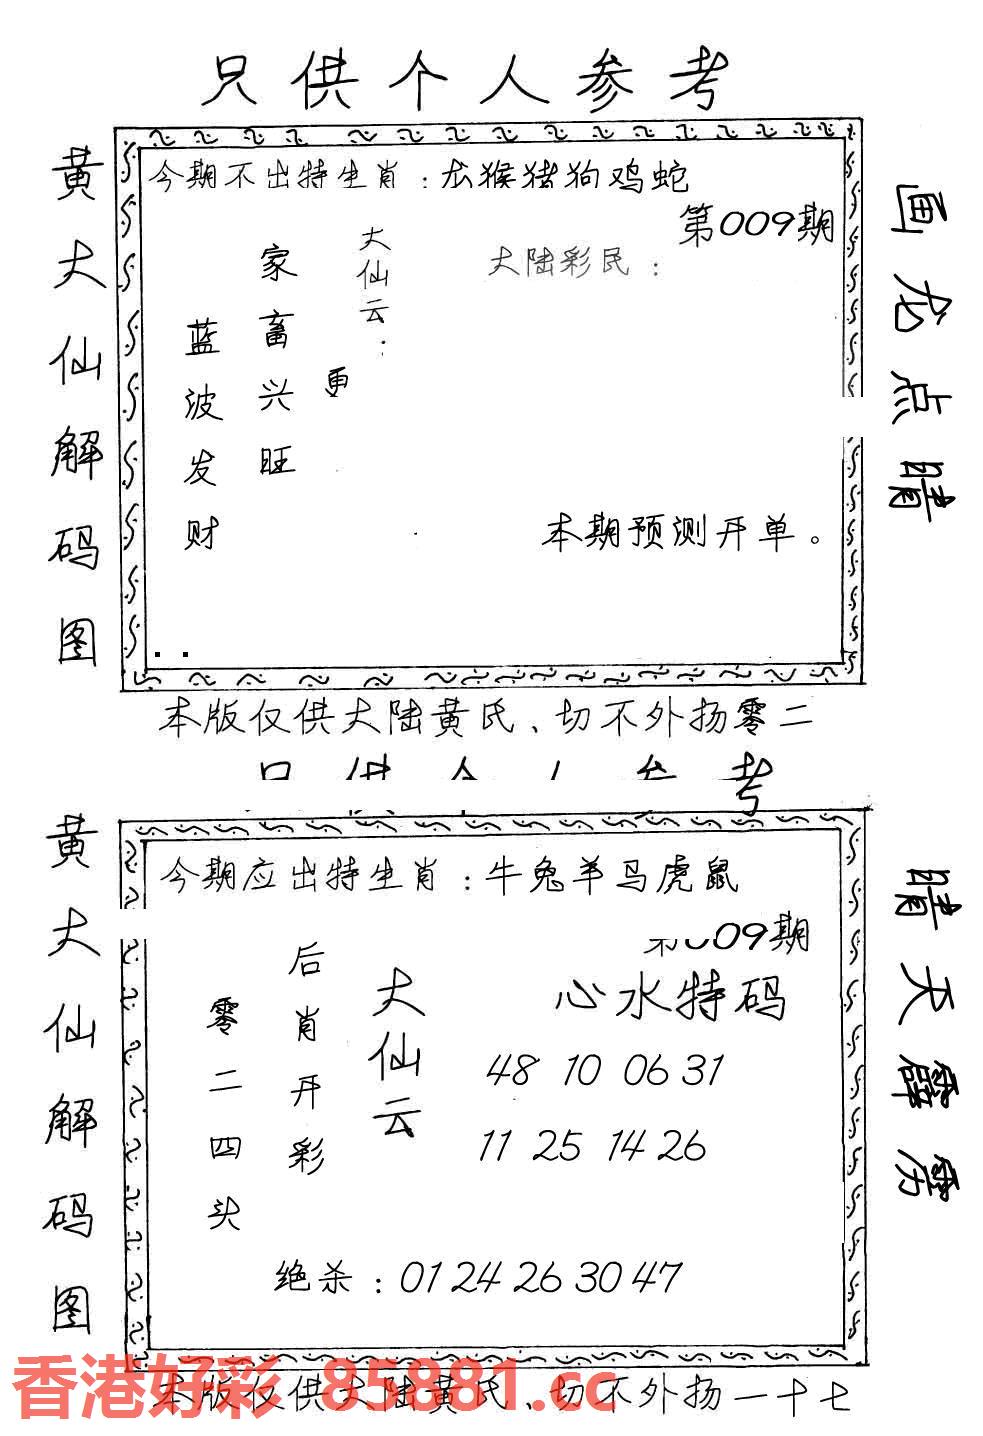 只供个人参考
黄大仙解码图
今期不出特生肖：龙猴猪狗鸡蛇
第009期
大陆彩民：
大仙云：
家畜兴旺
蓝波发财
本期预测开单。
画龙点睛
本版仅供大陆黄氏、切不外扬零二
只供个人参考
黄大仙解码图
今期应出特生肖：牛兔羊马虎鼠
第009期
心水特码
大仙云
后肖开彩
零二四头
48 10 06 31
11 25 14 26
绝杀：01 24 26 30 47
晴天霹雳
香港好彩 85881.cc
本版仅供大陆黄氏、切不外扬一十七